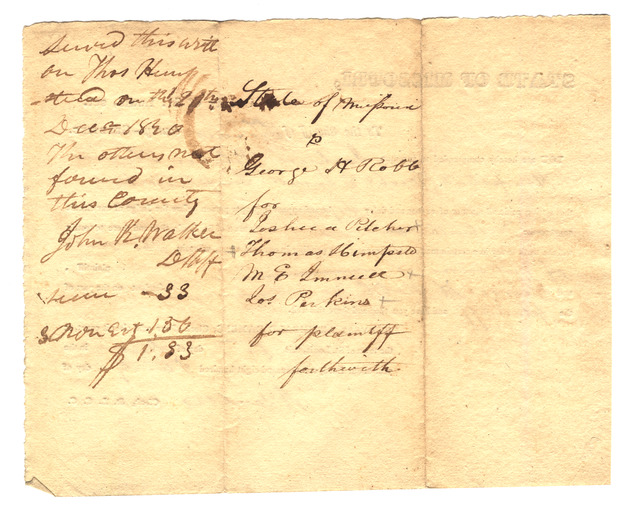 Served this writ
on Thos Hemp
sted on the 29th
Decr 1820
The others not
found in
this County
John K. Walker
D Shff
serv 33
3 Non Est 1.50
$1.83
State of Missouri
vs
George H Robb
for
Joshua Pilcher
Thomas Hempsted
M E Immell
Jos Perkins
for plaintff
forthwith
STATE OF MISSOURI,